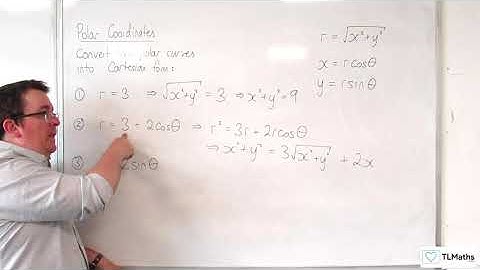 Polar Coordinates
Convert polar curves
into Cartesian form:
r = √(x²+y²)
x = rcosθ
y = rsinθ
① r = 3 ⇒ √(x²+y²) = 3 ⇒ x²+y² = 9
② r = 3 + 2cosθ ⇒ r² = 3r + 2rcosθ
⇒ x²+y² = 3√(x²+y²) + 2x
③ 2sinθ
TLMaths